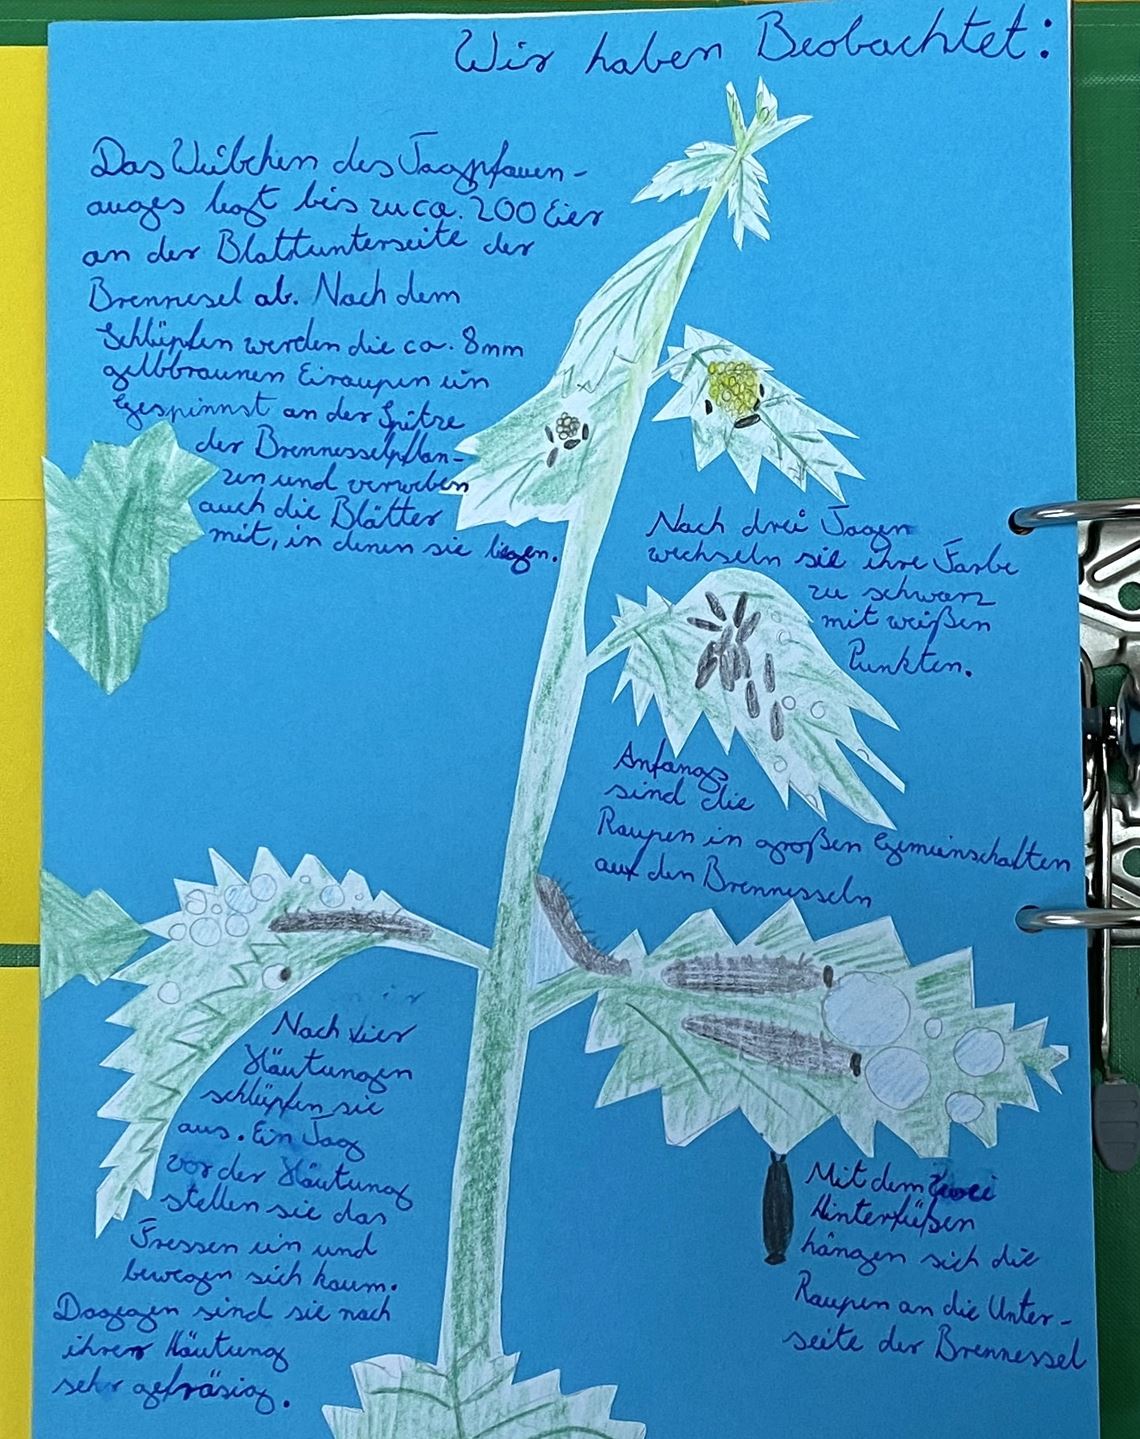 Wir haben Beobachtet:
Das Weibchen des Tagpfauen-
auges legt bis zu ca. 200 Eier
an der Blattunterseite der
Brennesel ab. Nach dem
Schlüpfen werden die ca. 8mm
gelbbraunen Eiraupen ein
Gespinnst an der Spitze
der Brennesselpflan-
zen und verweben
auch die Blätter
mit, in denen sie liegen.
Nach drei Tagen
wechseln sie ihre Farbe
zu schwarz
mit weißen
Punkten.
Anfangs
sind die
Raupen in großen Gemeinschaften
auf den Brennesseln
Nach vier
Häutungen
schlüpfen sie
aus. Ein Tag
vor der Häutung
stellen sie das
Fressen ein und
bewegen sich kaum.
Dagegen sind sie nach
ihrer Häutung
sehr gefräsig.
Mit dem zwei
Hinterfüßen
hängen sich die
Raupen an die Unter-
seite der Brennessel